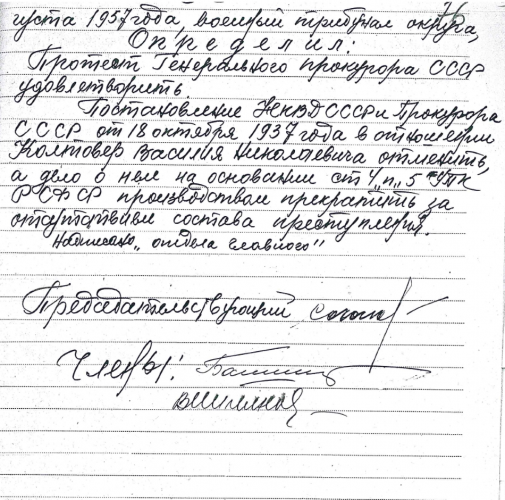 густа 1957 года, военный трибунал округа,
Определил:
Протест Генерального прокурора СССР
удовлетворить.
Постановление НКВД СССР и Прокурора
СССР от 18 октября 1937 года в отношении
Колтовер Василия Николаевича отменить,
а дело о нем на основании ст 4 „п„ 5 УПК
РСФСР производством прекратить за
отсутствием состава преступления.
Надписано „отдела главного"
Председательствующий
Члены: